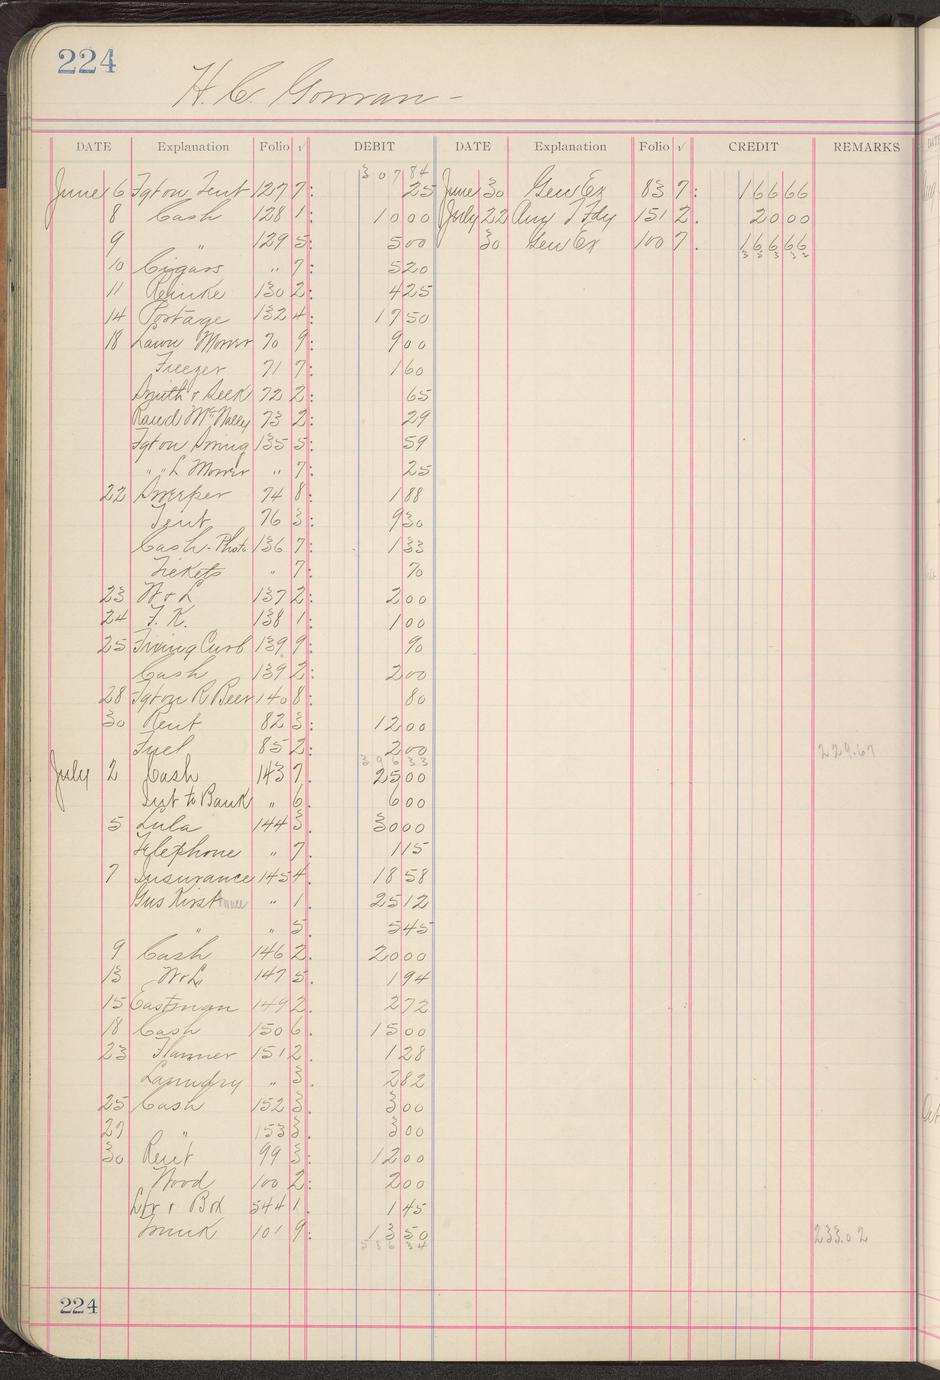 224
H. C. Gowran -
DATE Explanation Folio √ DEBIT DATE Explanation Folio √ CREDIT REMARKS
307 84
June 6 Fgt on Tent 127 7: 25 June 30 Gen Ex 83 7: 166 66
8 Cash 128 1: 10 00 July 22 Aug T Fdy 151 2. 20 00
9 " 129 5: 5 00 30 Gen Ex 100 7. 166 66
353 32
10 Cigars " 7: 5 20
11 Reinke 130 2: 4 25
14 Postage 132 4: 17 50
18 Lawn Mower 70 9: 9 00
Freezer 71 7: 1 60
Smith & Seek 72 2: 65
Rand McNally 73 2: 29
Fgt on Swing 135 5: 59
" " L Mower " 7: 25
22 Sweeper 74 8: 1 88
Tent 76 3: 9 30
Cash - Photo 136 7: 1 33
Tickets " 7: 70
23 W & L 137 2: 2 00
24 F. K. 138 1: 1 00
25 Fixing Curb 139 9: 90
Cash 139 2: 2 00
28 Fgt on R Beer 140 8: 80
30 Rent 82 3: 12 00
Fuel 85 2: 2 00 229.67
396 33
July 2 Cash 143 7. 25 00
Int to Bank " 6. 6 00
5 Lula 144 3. 30 00
Telephone " 7. 1 15
7 Insurance 145 4. 18 58
Gus Kirst " 1. 25 12
" " 5. 5 45
9 Cash 146 2. 20 00
13 W & L 147 5. 1 94
15 Eastman 149 2. 2 72
18 Cash 150 6. 15 00
23 Flanner 151 2. 1 28
Laundry " 3. 2 82
25 Cash 152 3. 3 00
27 " 153 3. 3 00
30 Rent 99 3: 12 00
Wood 100 2: 2 00
Lbr & Box 544 1. 1 45
Trunk 101 9: 13 50 233.02
586 34
224